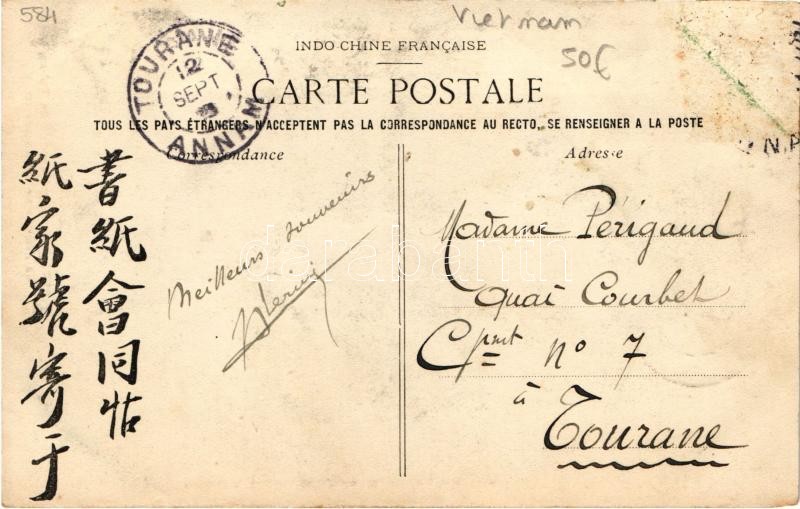 584
Vietnam
50€
INDO-CHINE FRANÇAISE
CARTE POSTALE
TOUS LES PAYS ÉTRANGERS N'ACCEPTENT PAS LA CORRESPONDANCE AU RECTO, SE RENSEIGNER A LA POSTE
TOURANE
12
SEPT
ANNAM
Correspondance
Adresse
書紙會同帖
紙家號寄于
Meilleurs souvenirs
Madame Périgaud
Quai Courbet
Cpmt n° 7
à
Tourane
darabanth